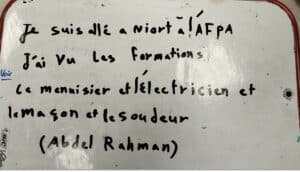 Je suis allé a Niort à l'AFPA
J'ai vu les formations
Voir
Le menuisier et l'électricien et
le maçon et le soudeur
(Abdel Rahman)